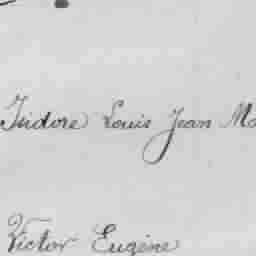 Isidore Louis Jean
Victor Eugène